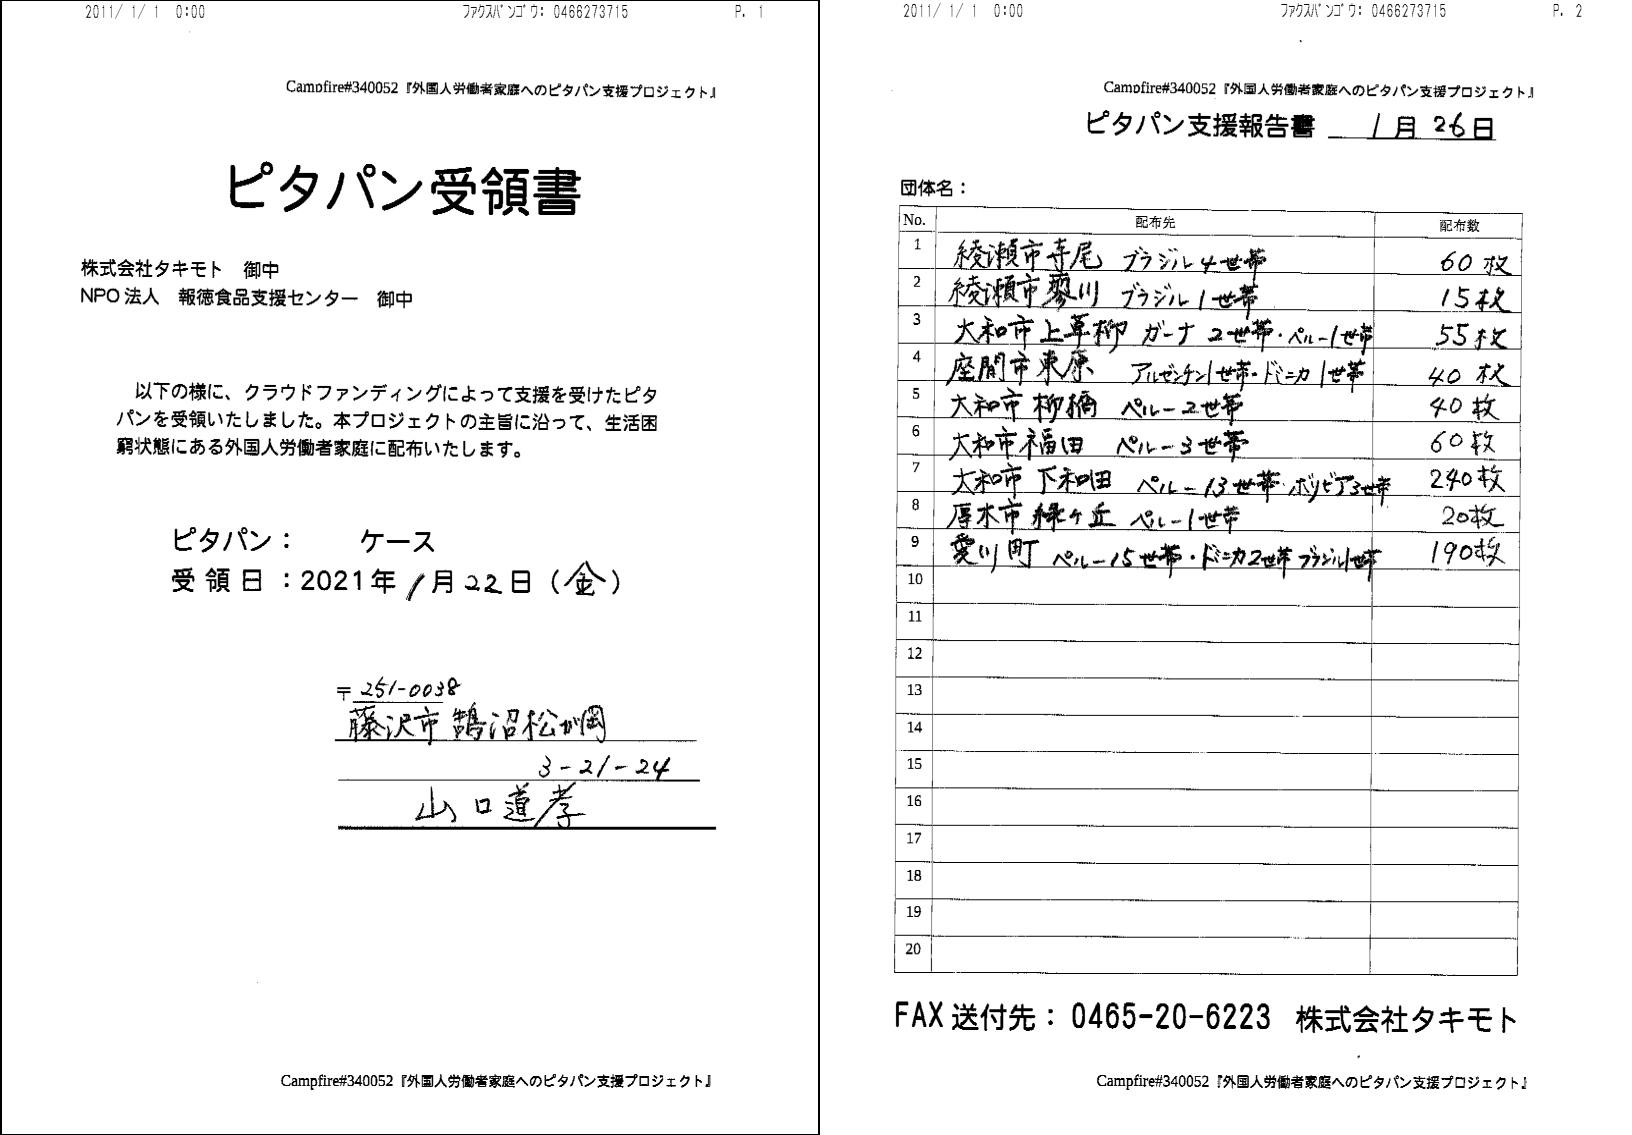 2011/ 1/ 1 0:00 ﾌｧｸｽﾊﾞﾝｺﾞｳ: 0466273715 P. 1
Campfire#340052『外国人労働者家庭へのピタパン支援プロジェクト』
ピタパン受領書
株式会社タキモト 御中
NPO法人 報徳食品支援センター 御中
以下の様に、クラウドファンディングによって支援を受けたピタ
パンを受領いたしました。本プロジェクトの主旨に沿って、生活困
窮状態にある外国人労働者家庭に配布いたします。
ピタパン： ケース
受領日：2021年1月22日（金）
〒251-0038
藤沢市鵠沼松が岡
3-21-24
山口道孝
Campfire#340052『外国人労働者家庭へのピタパン支援プロジェクト』
2011/ 1/ 1 0:00 ﾌｧｸｽﾊﾞﾝｺﾞｳ: 0466273715 P. 2
Campfire#340052『外国人労働者家庭へのピタパン支援プロジェクト』
ピタパン支援報告書 1月26日
団体名：
No. 配布先 配布数
1 綾瀬市寺尾 ブラジル4世帯 60枚
2 綾瀬市蓼川 ブラジル1世帯 15枚
3 大和市上草柳 ガーナ2世帯・ペルー1世帯 55枚
4 座間市東原 アルゼンチン1世帯・ドミニカ1世帯 40枚
5 大和市柳橋 ペルー2世帯 40枚
6 大和市福田 ペルー3世帯 60枚
7 大和市下和田 ペルー13世帯・ボリビア3世帯 240枚
8 厚木市緑ヶ丘 ペルー1世帯 20枚
9 愛川町 ペルー15世帯・ドミニカ2世帯 ブラジル1世帯 190枚
10
11
12
13
14
15
16
17
18
19
20
FAX送付先：0465-20-6223 株式会社タキモト
Campfire#340052『外国人労働者家庭へのピタパン支援プロジェクト』